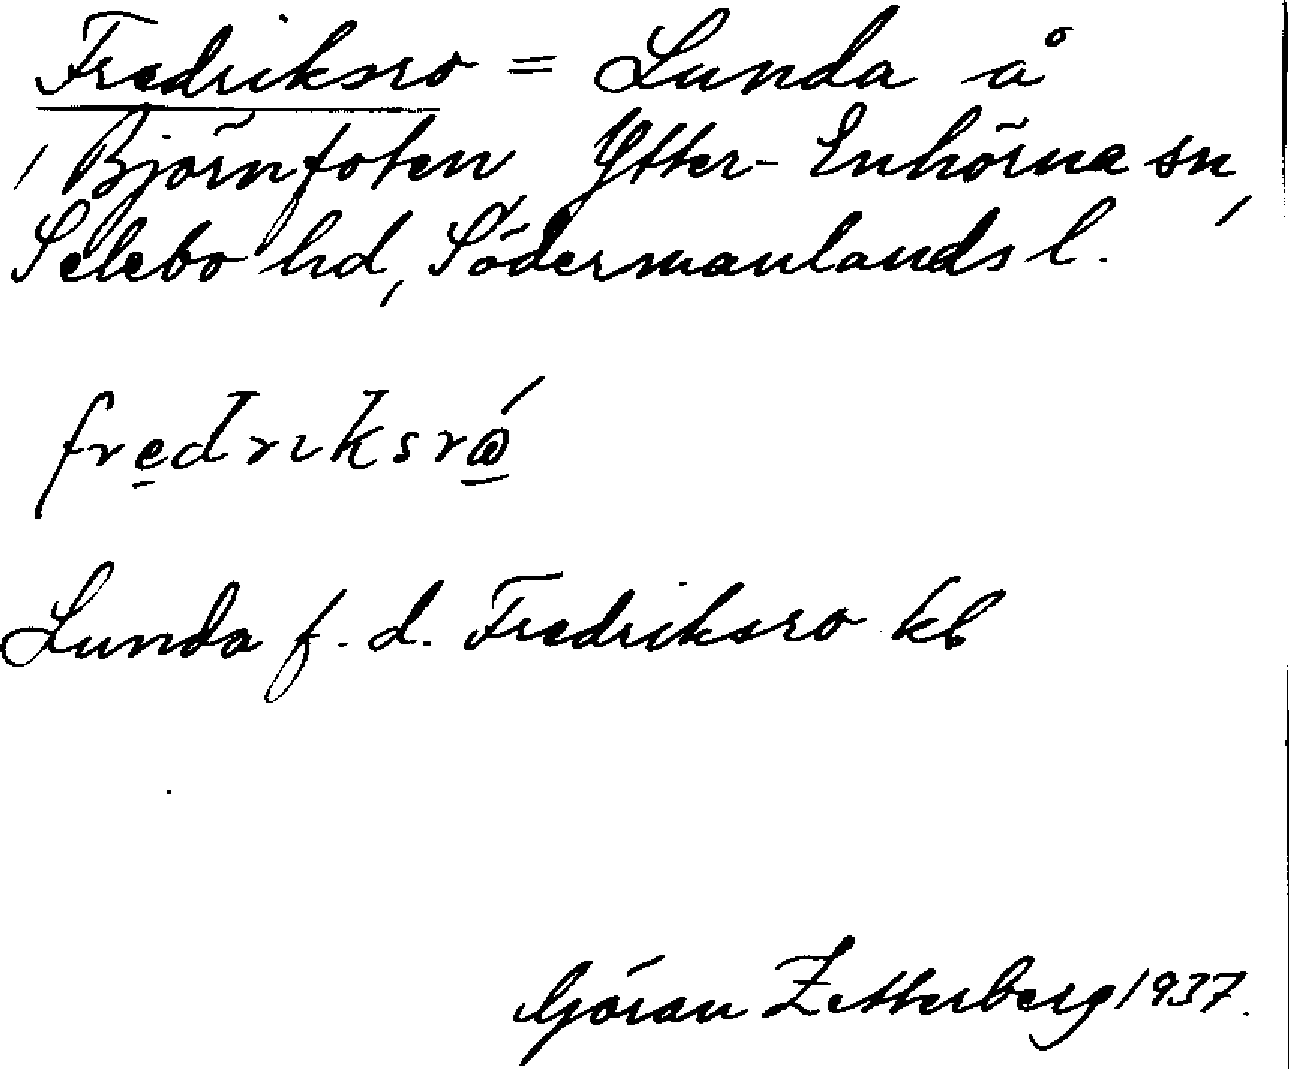 Fredriksro = Lunda å
1 Björnfoten Ytter-Enhörna sn,
Selebo hd, Södermanlands l.
Lunda f.d. Fredriksro kb
Göran Zetterberg 1937.